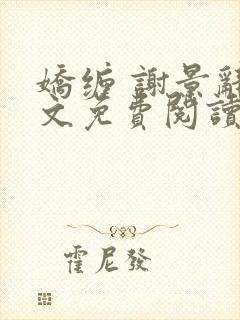 嬌缠 謝景辭
文免費閱讀
霍尼發